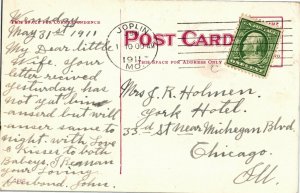 THIS SPACE FOR CORRESPONDENCE
May 31st 1911
My Dear little
Wife, your
letter received
yesterday has
not yet been
anserd but will
anser same to
night. with Love
& kisses to both
Babeys, I Remain
your Loving
Husband, John.
JOPLIN
10 00 AM
1911
MO.
POST CARD
THIS SPACE FOR ADDRESS ONLY
Mrs J. R. Holmen
York Hotel
33rd St near Michegan Blvd
Chicago.
Ill.